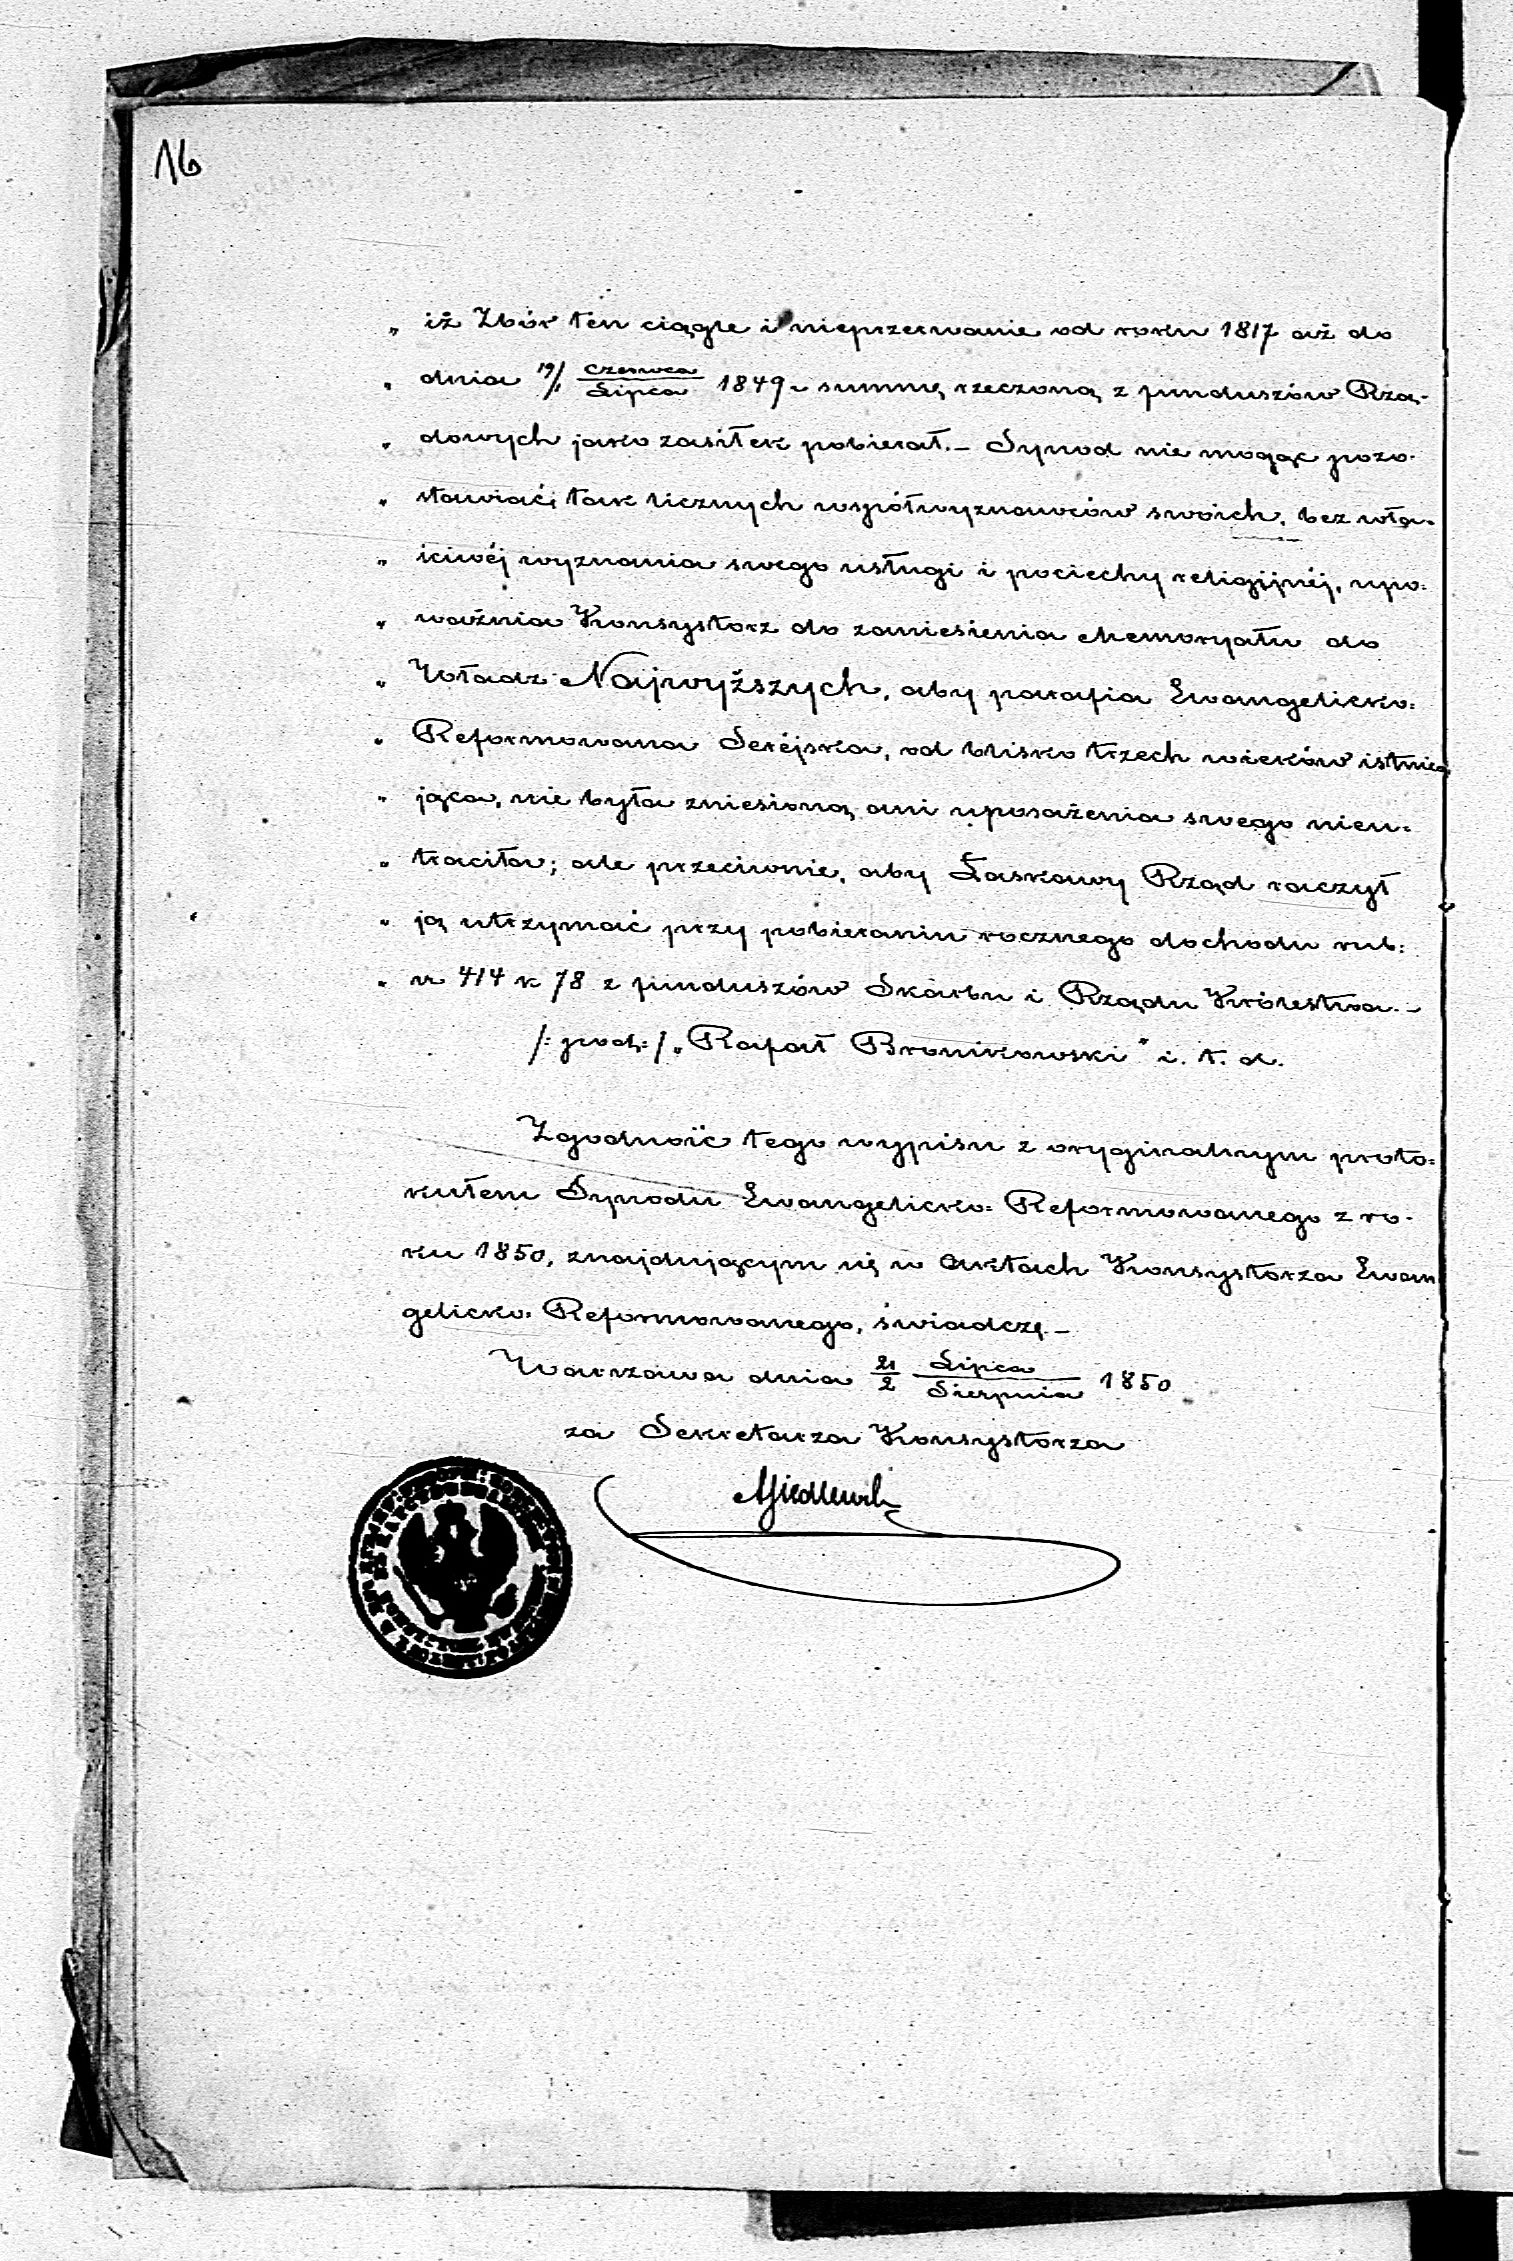 16
„ iż Zbór ten ciągle i nieprzerwanie od roku 1817 aż do
„ dnia 19/1 Czerwca/Lipca 1849 r summę rzeczoną z funduszów Rzą-
„ dowych jako zasiłek pobierał. – Synod nie mogąc pozo-
„ stawiać tak licznych współwyznawców swoich, bez wła-
„ ściwéj wyznania swego usługi i pociechy religijnéj, upo=
„ ważnia Konsystorz do zaniesienia Memoryału do
„ Władz Najwyższych, aby parafia Ewangelicko=
„ Reformowana Seréjska, od blisko trzech wieków istnie-
„ jąca, nie była zniesioną ani uposażenia swego nieu=
„ traciła; ale przeciwnie, aby Łaskawy Rząd raczył
„ ją utrzymać przy pobieraniu rocznego dochodu rub=
„ sr 414 k 78 z funduszów Skarbu i Rządu Królestwa. –
/: podp: / „Rafał Bronikowski" i. t. d.
Zgodność tego wypisu z oryginalnym proto=
kułem Synodu Ewangelicko= Reformowanego z ro-
ku 1850, znajdującym się w Aktach Konsystorza Ewan
gelicko= Reformowanego, świadczę. –
Warszawa dnia 21/2 Lipca/Sierpnia 1850
za Sekretarza Konsystorza